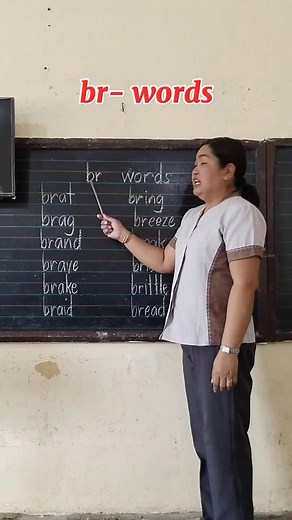 br- words
br words
brat bring
brag breeze
brand
brave
brake brittle
braid bread